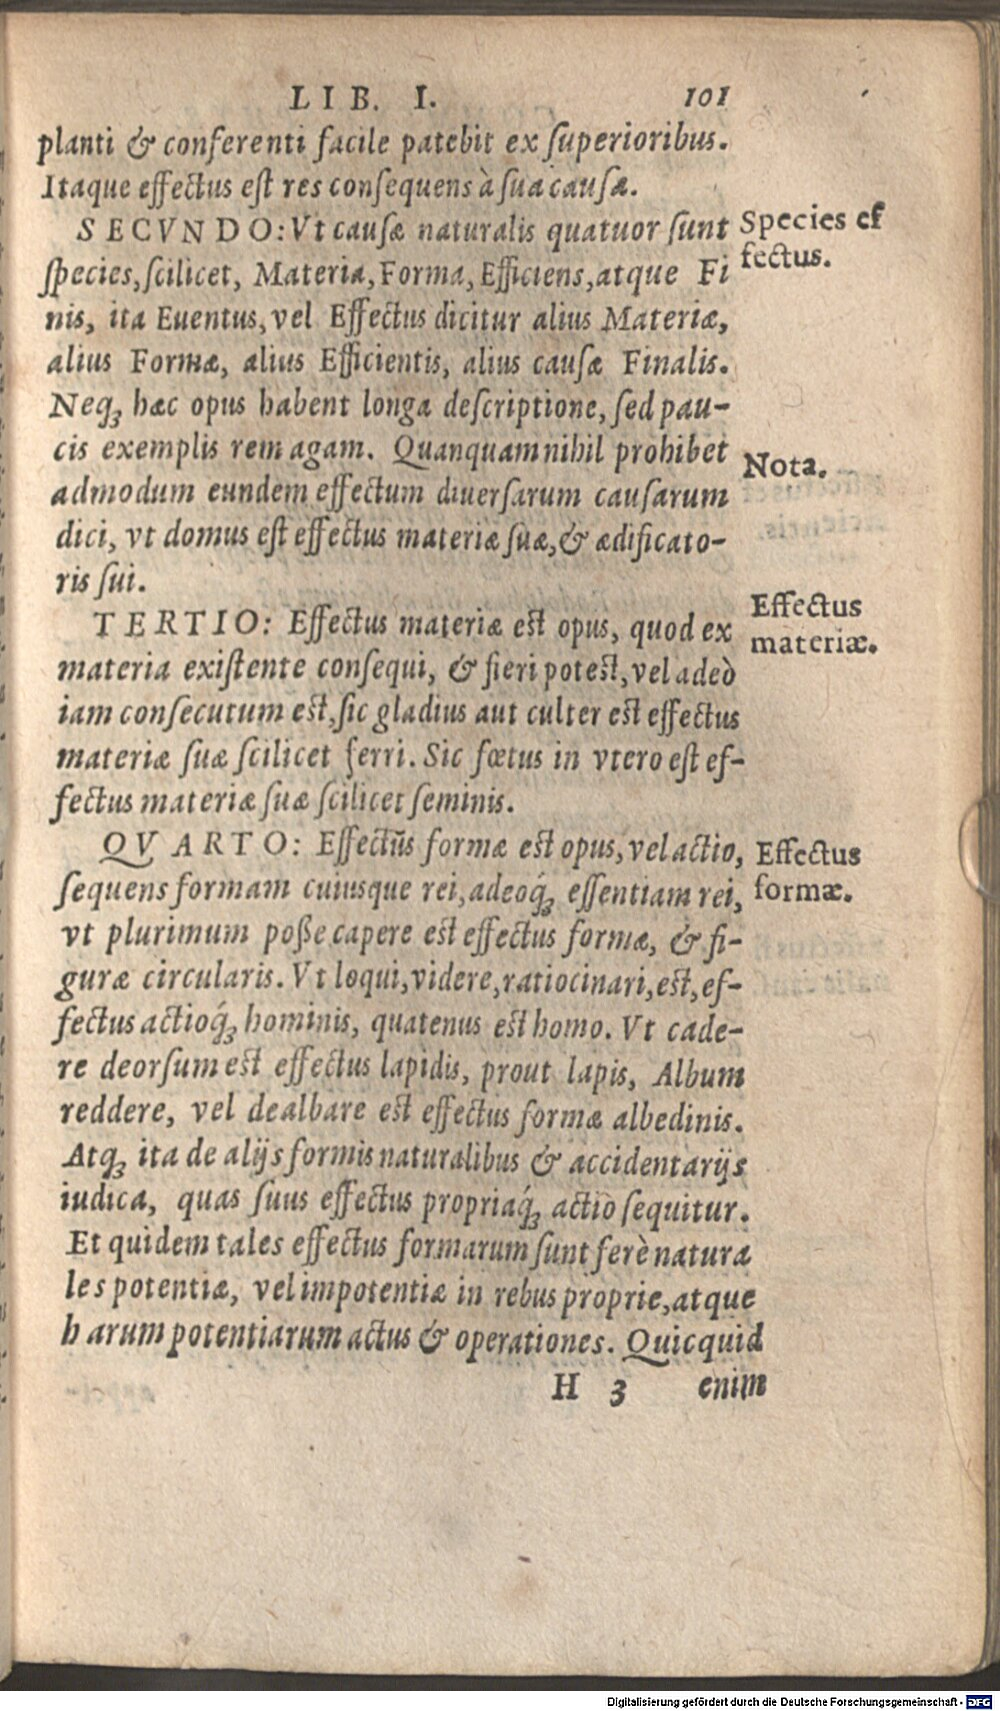 LIB. I. 101
planti & conferenti facile patebit ex ſuperioribus.
Itaque effectus eſt res conſequens à ſua cauſa.
SECVNDO: Vt cauſæ naturalis quatuor ſunt
ſpecies, ſcilicet, Materia, Forma, Efficiens, atque Fi
nis, ita Euentus, vel Effectus dicitur alius Materiæ,
alius Formæ, alius Efficientis, alius cauſæ Finalis.
Neqꝫ hæc opus habent longa deſcriptione, ſed pau-
cis exemplis rem agam. Quanquam nihil prohibet
admodum eundem effectum diuerſarum cauſarum
dici, vt domus eſt effectus materiæ ſuæ, & ædificato-
ris ſui.
TERTIO: Effectus materiæ eſt opus, quod ex
materia exiſtente conſequi, & fieri poteſt, vel adeò
iam conſecutum eſt, ſic gladius aut culter eſt effectus
materiæ ſuæ ſcilicet ferri. Sic fœtus in vtero eſt ef-
fectus materiæ ſuæ ſcilicet ſeminis.
QVARTO: Effectus formæ eſt opus, vel actio,
ſequens formam cuiusque rei, adeoq́ꝫ eſſentiam rei,
vt plurimum poße capere eſt effectus formæ, & fi-
guræ circularis. Vt loqui, videre, ratiocinari, est, ef-
fectus actioq́ꝫ hominis, quatenus eſt homo. Vt cade-
re deorſum eſt effectus lapidis, prout lapis, Album
reddere, vel dealbare eſt effectus formæ albedinis.
Atqꝫ ita de alijs formis naturalibus & accidentarijs
iudica, quas ſuus effectus propriaq́ꝫ actio ſequitur.
Et quidem tales effectus formarum ſunt ferè natura
les potentiæ, vel impotentiæ in rebus proprie, atque
harum potentiarum actus & operationes. Quicquid
H 3 enim
Species ef
fectus.
Nota.
Effectus
materiæ.
Effectus
formæ.
Digitalisierung gefördert durch die Deutsche Forschungsgemeinschaft - DFG